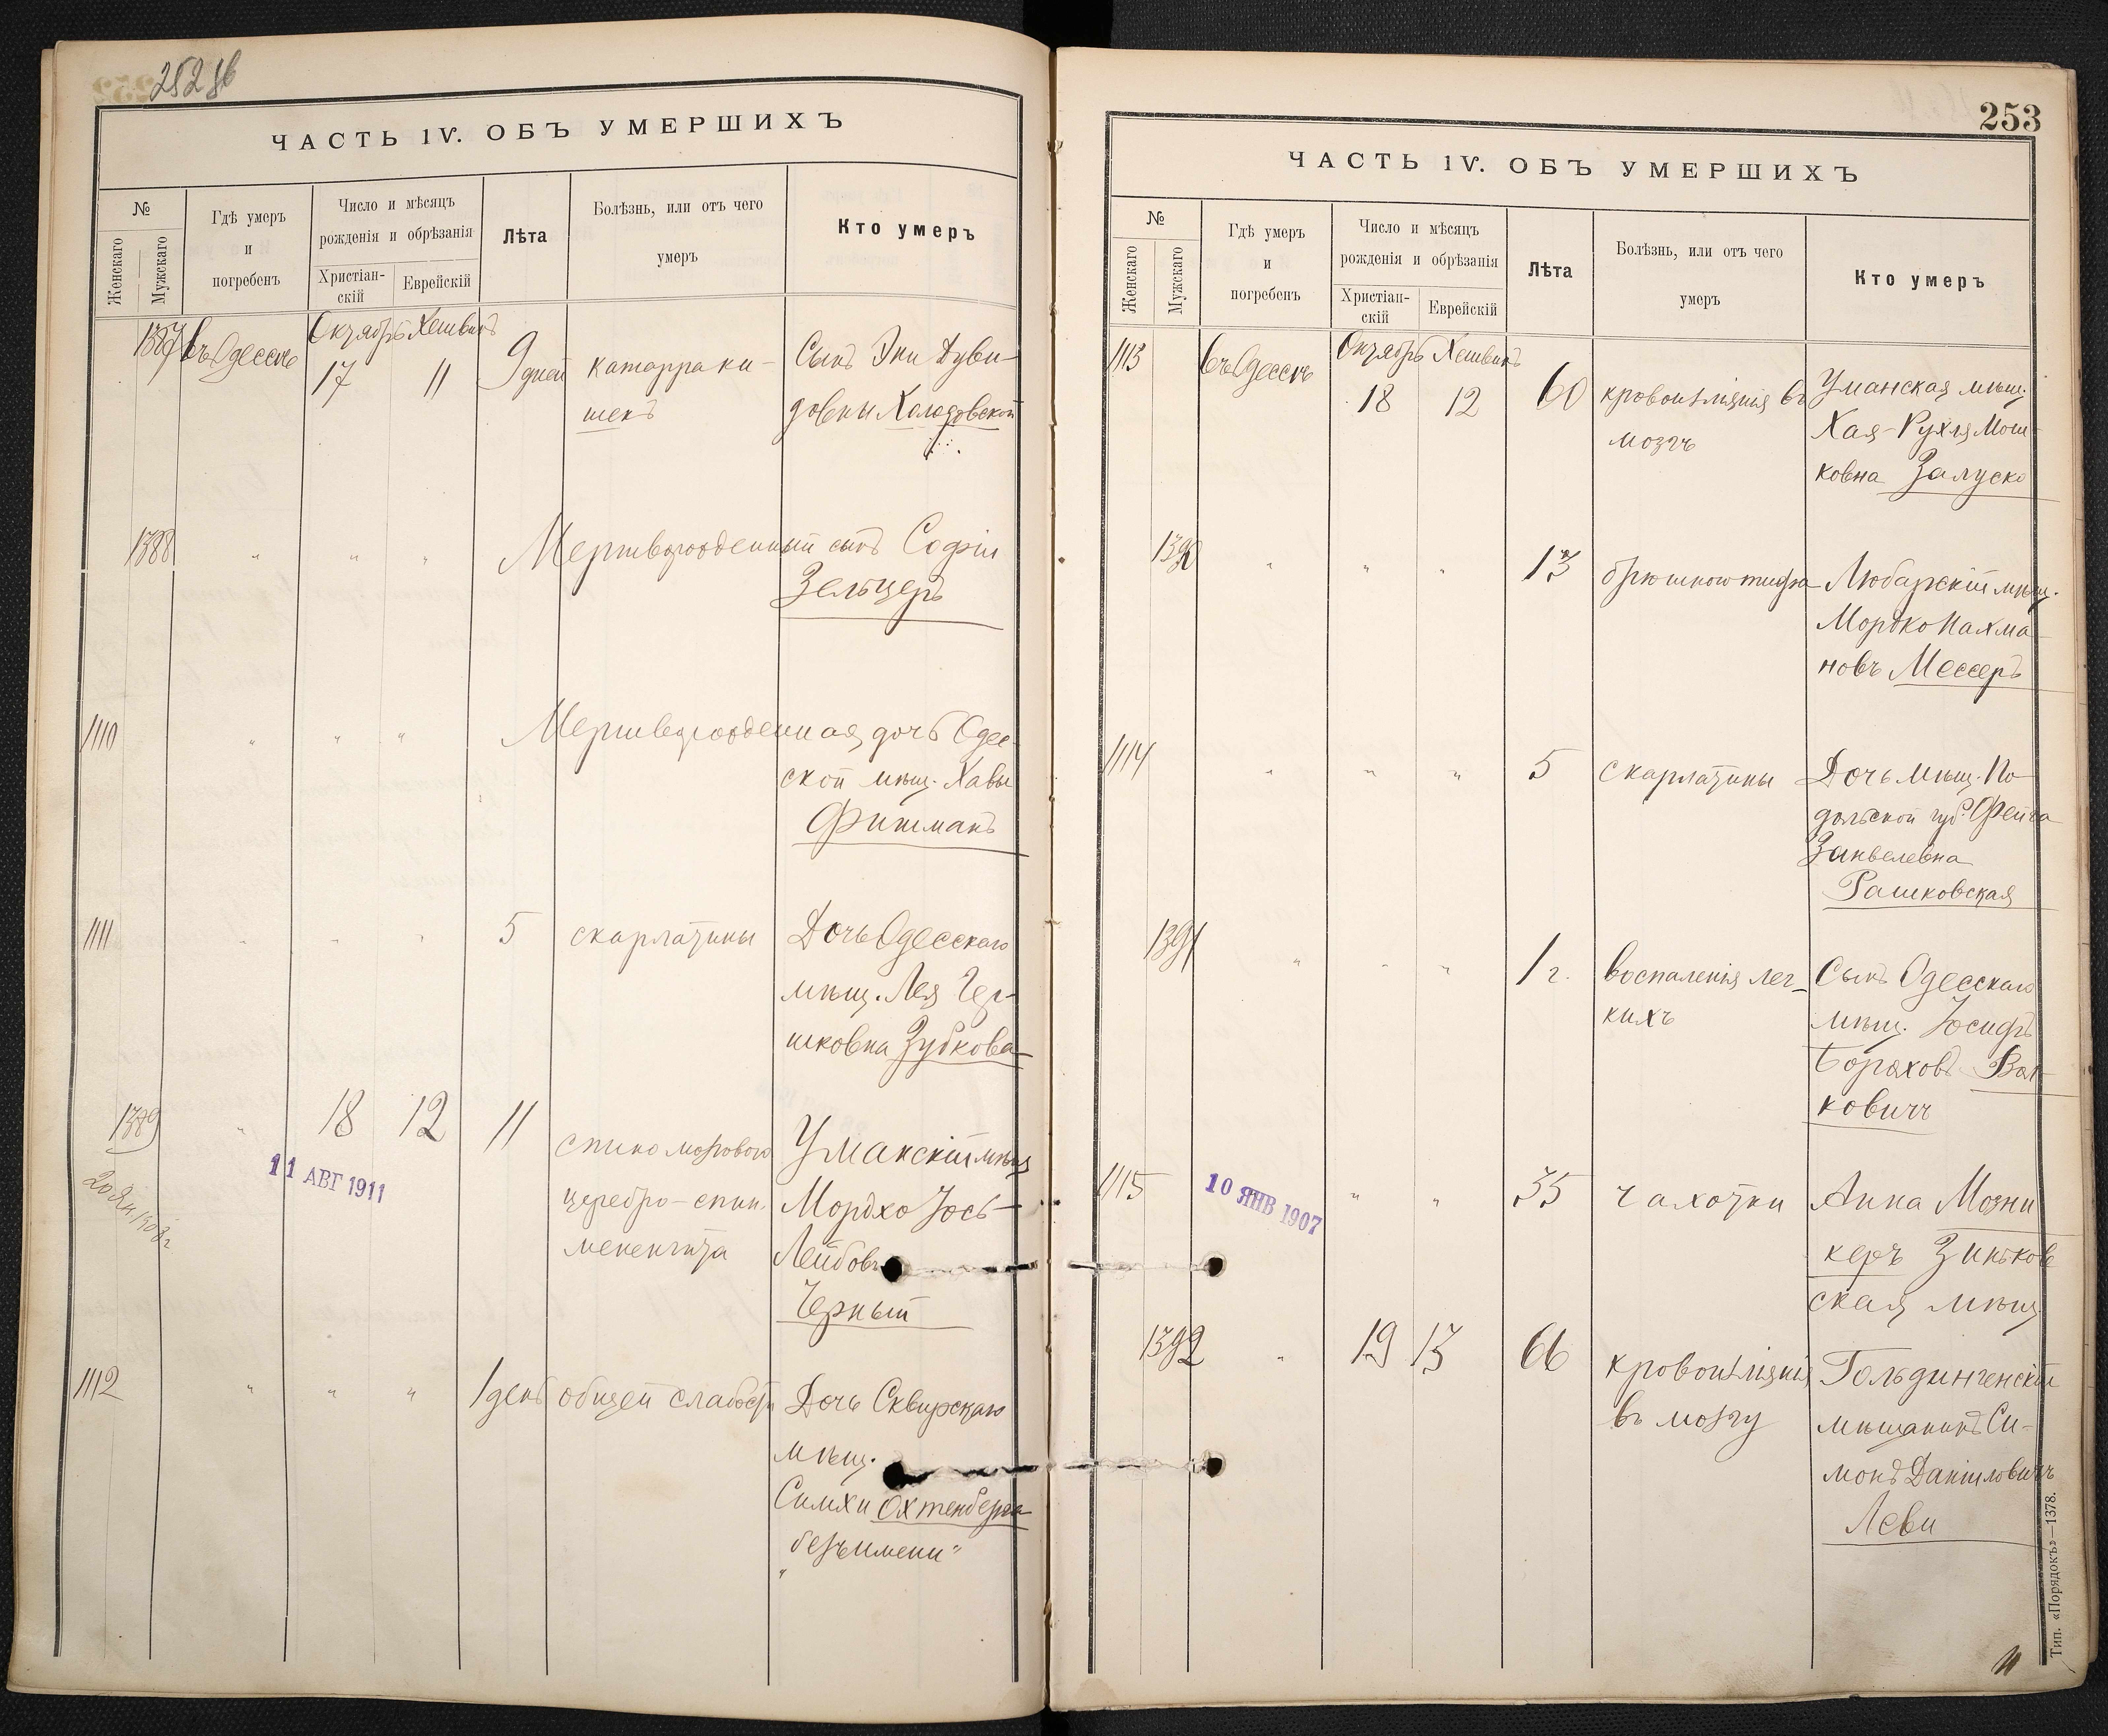 252 об
ЧАСТЬ IV. ОБЪ УМЕРШИХЪ
№
Женскаго
Мужскаго
Гдѣ умеръ
и
погребенъ
Число и мѣсяцъ
рожденія и обрѣзанія
Христіан-
скій
Еврейскій
Лѣта
Болѣзнь, или отъ чего
умеръ
Кто умеръ
1387 въ Одессѣ Октябрь Хешванъ
17 11 9 дней катарра ки-
шекъ
Сынъ Эни Дуви-
довны Холодовской
1388 " " " Мертворожденный сынъ Софіи
Зельцеръ
1110 " " " Мертворожденная дочь Одес-
ской мѣщ. Хавы
Фишманъ
1111 " " " 5 скарлатины Дочь Одесскаго
мѣщ. Лея Гер-
шковна Зубкова
1389 " 18 12 11 спино мозгового
церебро-спин.
менингита
Уманскій мѣщ
Мордхо Іось-
Лейбовъ
Черный
11 АВГ 1911
20 Ян. 1908 г
1112 " " " 1 день общей слабости Дочь Сквирскаго
мѣщ.
Симхи Охтенберга
"безъ имени"
253
ЧАСТЬ IV. ОБЪ УМЕРШИХЪ
№
Женскаго
Мужскаго
Гдѣ умеръ
и
погребенъ
Число и мѣсяцъ
рожденія и обрѣзанія
Христіан-
скій
Еврейскій
Лѣта
Болѣзнь, или отъ чего
умеръ
Кто умеръ
1113 въ Одессѣ Октябрь Хешванъ
18 12 60 кровоизліянія въ
мозгъ
Уманская мѣщ.
Хая-Рухля Мош-
ковна Залуско
1390 " " " 13 брюшного тифа Любарскій мѣщ.
Мордко Нахма-
новъ Мессеръ
1114 " " " 5 скарлатины Дочь мѣщ. По-
дольской губ. Фейга
Занвелевна
Рашковская
1391 " " " 1 г. воспаленія лег-
кихъ
Сынъ Одесскаго
мѣщ. Іосифъ
Бораховъ Вол-
ковичъ
1115 10 ЯНВ 1907 " " 35 чахотки Анна Мозни
керъ Зиньков
ская мѣщ.
1392 " 19 13 66 кровоизліянія
въ мозгу
Гольдингенскій
мѣщанинъ Си-
монъ Даніиловичъ
Леви
Тип. «Порядокъ»—1378.